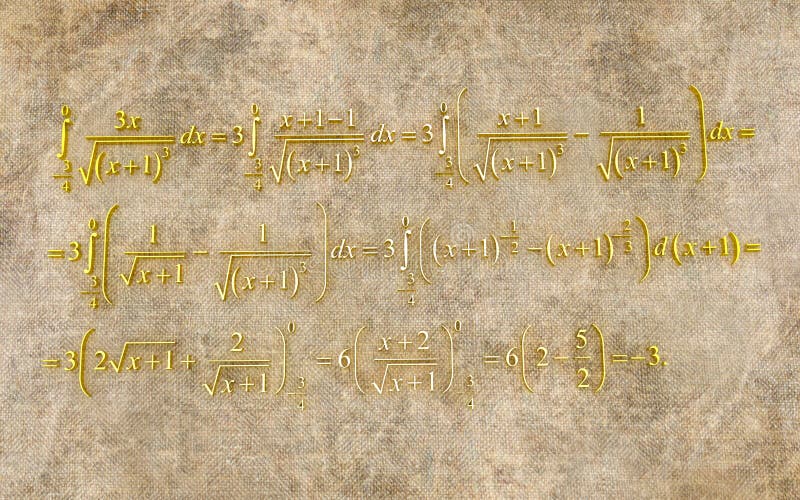 \int_{-\frac{3}{4}}^{0} \frac{3x}{\sqrt{(x+1)^3}} dx = 3 \int_{-\frac{3}{4}}^{0} \frac{x+1-1}{\sqrt{(x+1)^3}} dx = 3 \int_{-\frac{3}{4}}^{0} \left( \frac{x+1}{\sqrt{(x+1)^3}} - \frac{1}{\sqrt{(x+1)^3}} \right) dx =
= 3 \int_{-\frac{3}{4}}^{0} \left( \frac{1}{\sqrt{x+1}} - \frac{1}{\sqrt{(x+1)^3}} \right) dx = 3 \int_{-\frac{3}{4}}^{0} \left( (x+1)^{-\frac{1}{2}} - (x+1)^{-\frac{2}{3}} \right) d(x+1) =
= 3 \left( 2\sqrt{x+1} + \frac{2}{\sqrt{x+1}} \right)_{-\frac{3}{4}}^{0} = 6 \left( \frac{x+2}{\sqrt{x+1}} \right)_{-\frac{3}{4}}^{0} = 6 \left( 2 - \frac{5}{2} \right) = -3.